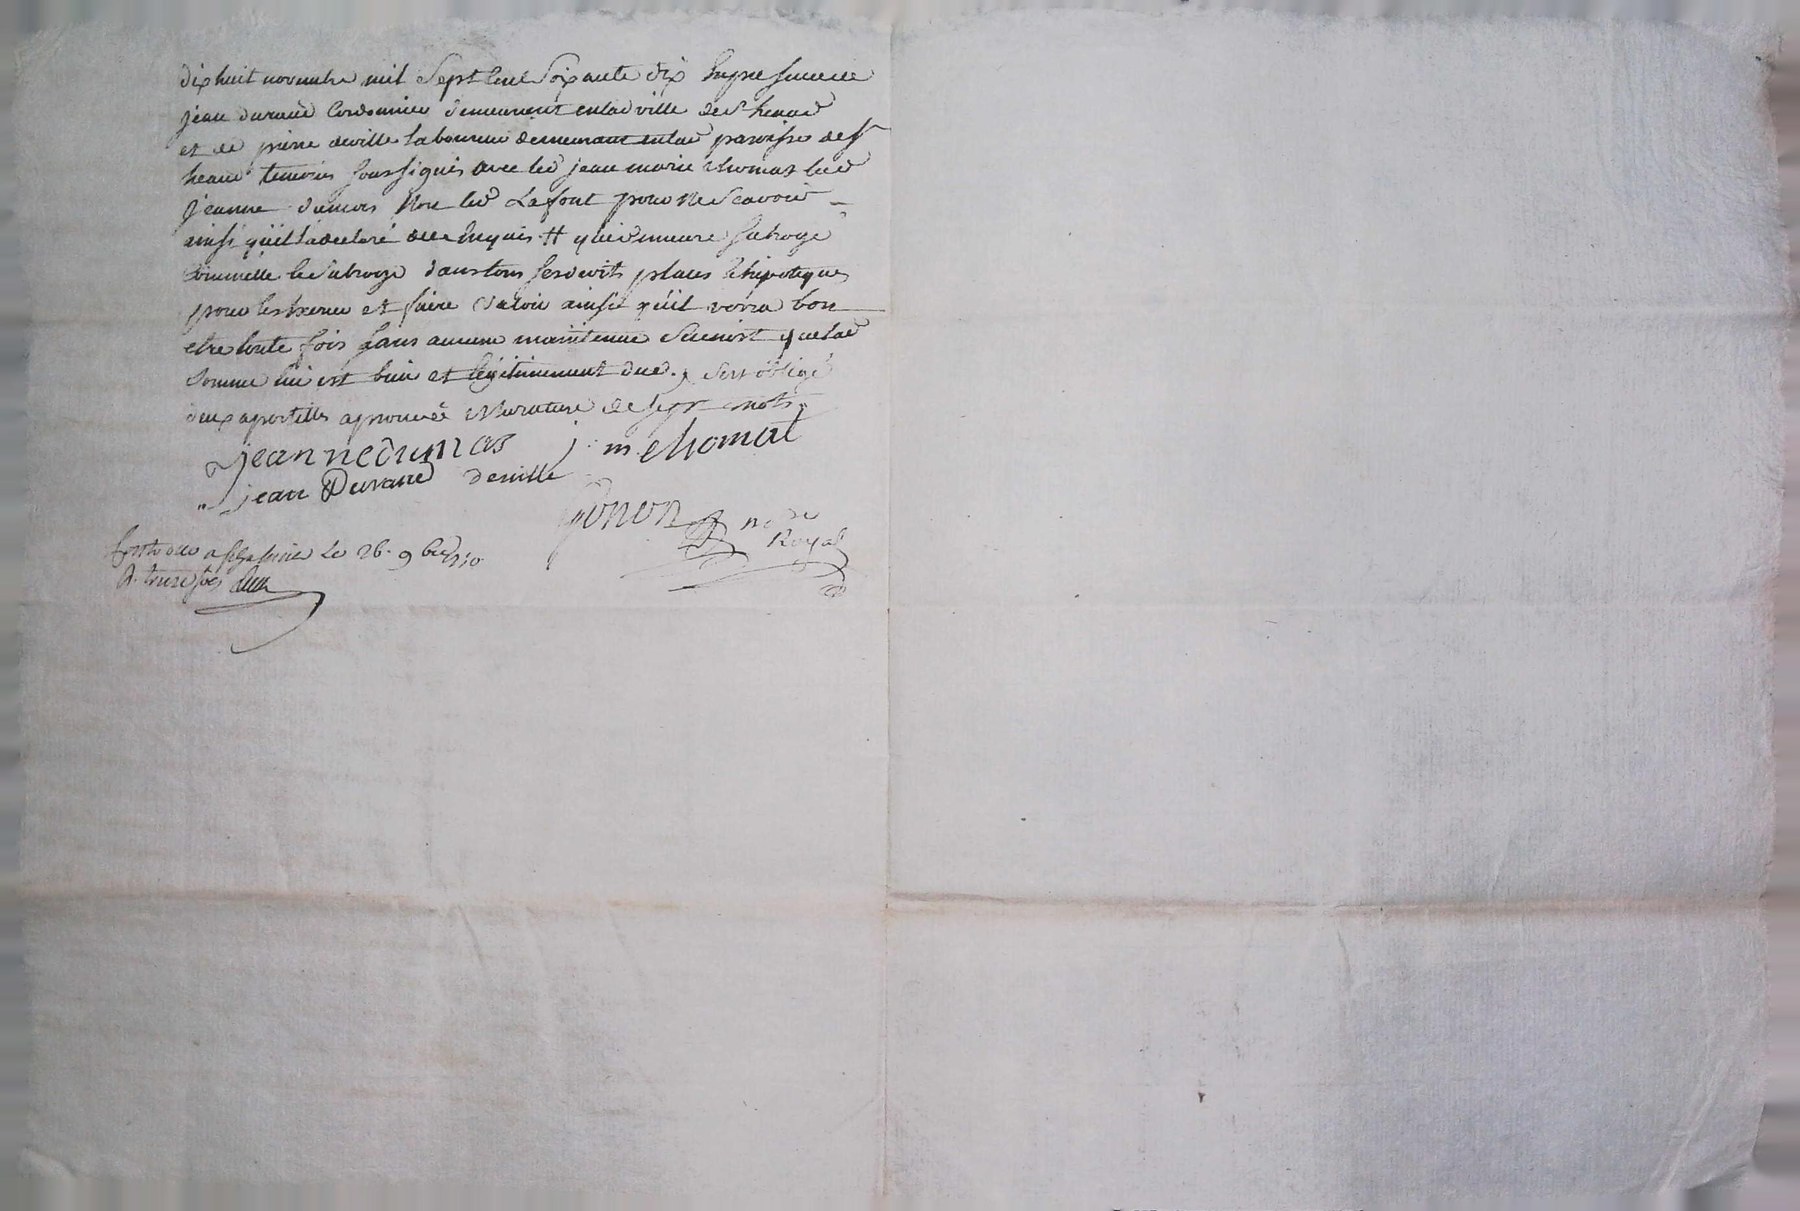 dix huit novembre mil Sept Cent Soixante dix En presence
jean durand Cordonnier demeurant en lad ville de St heand
et de pierre deville laboureur demeurant en lad paroisse de St
heand temoins soussignés avec led jean marie thomas lad
jeanne dumas Non led Lafont pour ne Scavoir
ainsi qu'il la declaré de ce Enquis # qui demeure subrogé
comme elle le subroge dans tous ses droits places & hipoteques
pour les Exercer et faire valoir ainsi qu'il verra bon
etre toute fois sans aucune maintenue Sinon que lad
somme lui est bien et legitimement due. oblige
deux apostilles aprouvée & Rurature de Sept mots
jeanne dumas j. m. thomas
jean Durand deville
gonon no re
Royal
le 26. 9 bre 1770